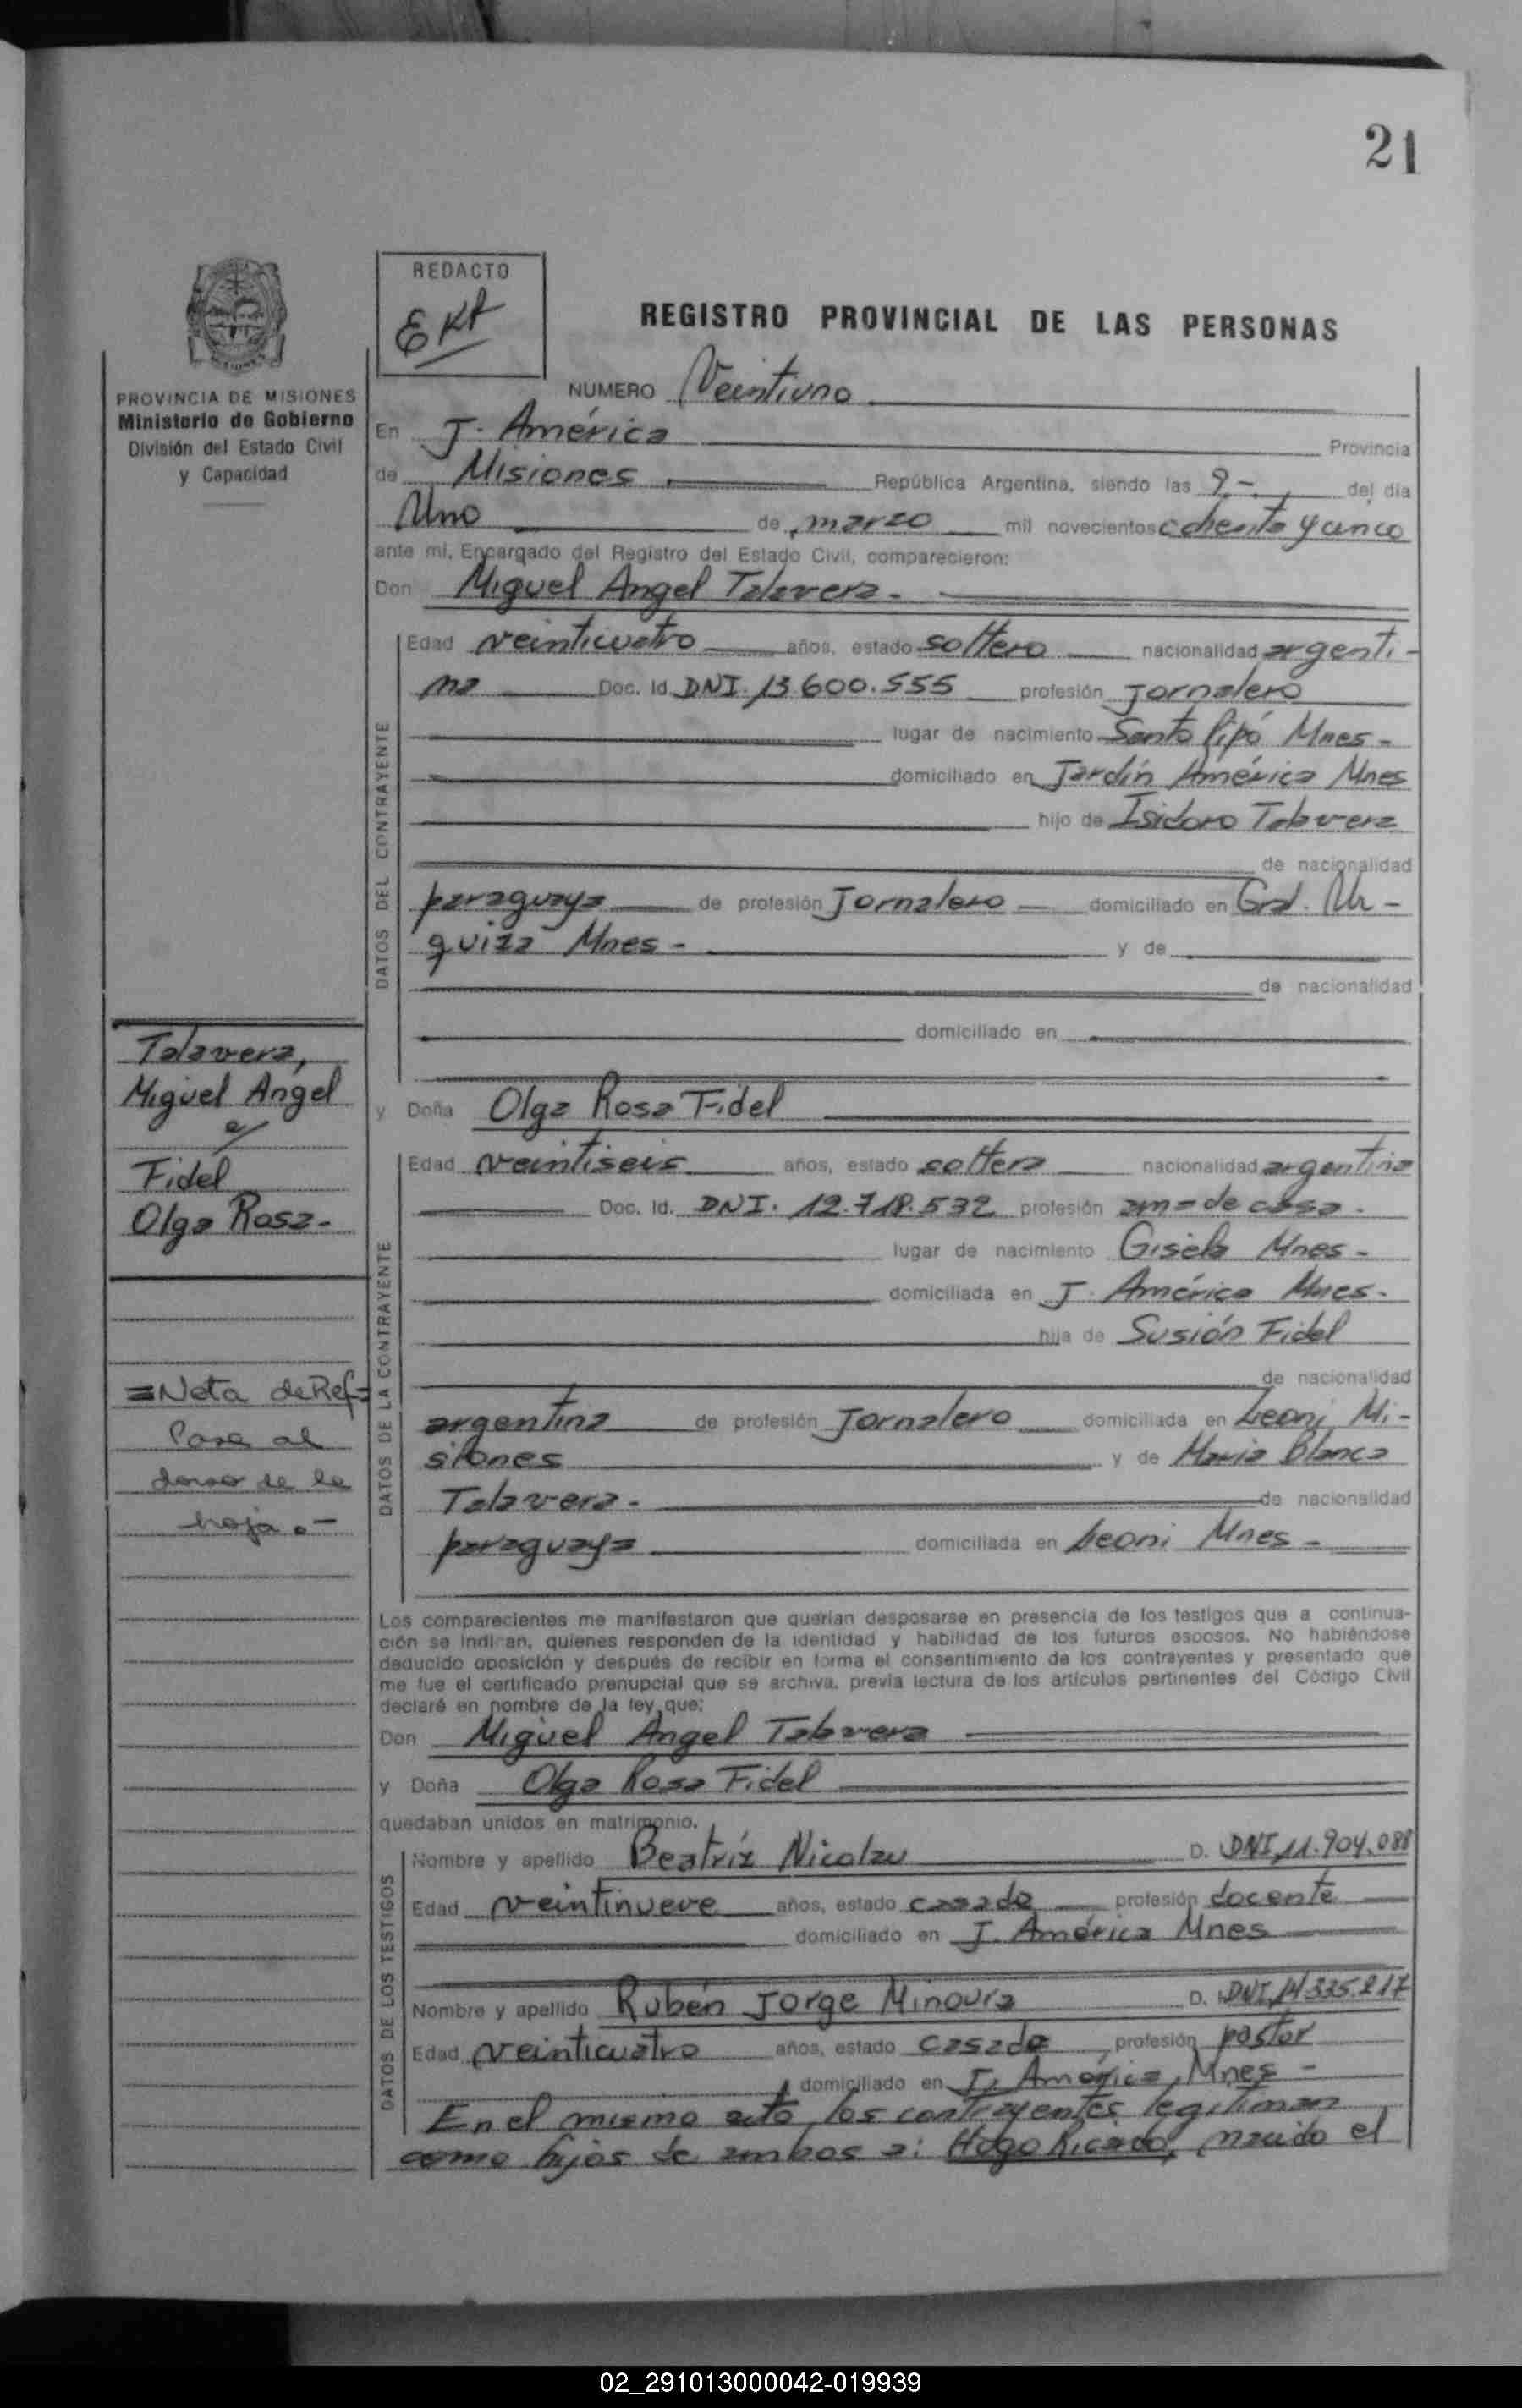 21
REDACTO
REGISTRO PROVINCIAL DE LAS PERSONAS
NUMERO Veintiuno
PROVINCIA DE MISIONES
Ministerio de Gobierno
División del Estado Civil
y Capacidad
En J. América Provincia
de Misiones República Argentina, siendo las 9.- del día
Uno de marzo mil novecientos ochenta y cinco
ante mi, Encargado del Registro del Estado Civil, comparecieron:
Don Miguel Angel Talavera.
DATOS DEL CONTRAYENTE
Edad veinticuatro años, estado soltero nacionalidad argenti-
na Doc. Id. DNI. 13.600.555 profesión Jornalero
lugar de nacimiento Santo Pipó Mnes-
domiciliado en Jardín América Mnes
hijo de Isidoro Talavera
de nacionalidad
paraguaya de profesión Jornalero domiciliado en Gral. Ur-
quiza Mnes- y de
de nacionalidad
domiciliado en
Talavera,
Miguel Angel
y
Fidel
Olga Rosa-
y Doña Olga Rosa Fidel
DATOS DE LA CONTRAYENTE
Edad veintiseis años, estado soltera nacionalidad argentina
Doc. Id. DNI. 12.718.532 profesión ama de casa.
lugar de nacimiento Gisela Mnes-
domiciliada en J. América Mnes-
hija de Susión Fidel
de nacionalidad
argentina de profesión Jornalero domiciliada en Leoni Mi-
siones y de Maria Blanca
Talavera. de nacionalidad
paraguaya domiciliada en Leoni Mnes-
=Nota de Ref=
Pasa al
dorso de la
hoja.-
Los comparecientes me manifestaron que querían desposarse en presencia de los testigos que a continua-
ción se indican, quienes responden de la identidad y habilidad de los futuros esposos. No habiéndose
deducido oposición y después de recibir en forma el consentimiento de los contrayentes y presentado que
me fue el certificado prenupcial que se archiva, previa lectura de los artículos pertinentes del Código Civil
declaré en nombre de la ley que:
Don Miguel Angel Talavera
y Doña Olga Rosa Fidel
quedaban unidos en matrimonio.
DATOS DE LOS TESTIGOS
Nombre y apellido Beatríz Nicolau D. DNI 11.904.088
Edad veintinueve años, estado casada profesión docente
domiciliado en J. América Mnes
Nombre y apellido Rubén Jorge Minoura D. DNI 14.335.217
Edad veinticuatro años, estado casado profesión pastor
domiciliado en J. América, Mnes-
En el mismo acto los contrayentes legitiman
como hijos de ambos a: Hugo Ricardo, nacido el
02_291013000042-019939